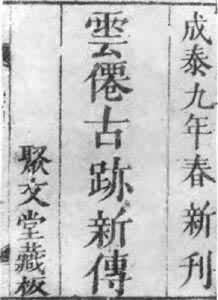 成泰九年春新刊
雲僊古跡新傳
聚文堂藏板